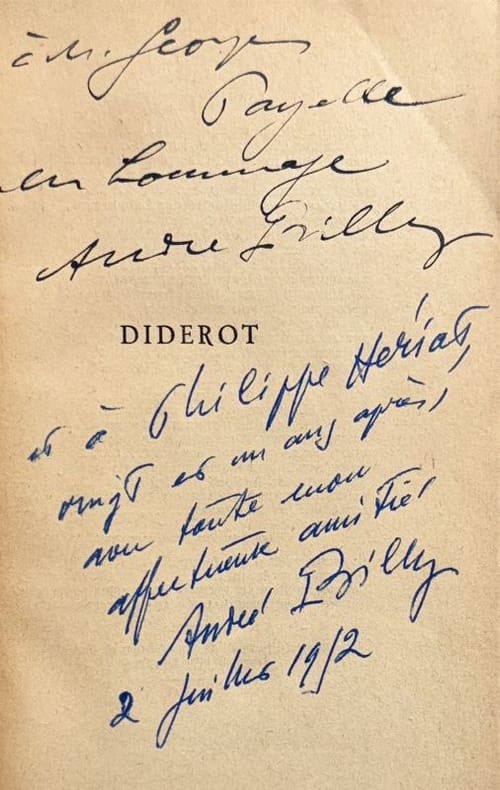 à M. Georges
Payelle
en hommage
André Billy
DIDEROT
et à Philippe Hériat,
vingt et un ans après,
avec toute mon
affectueuse amitié
André Billy
2 juillet 1952